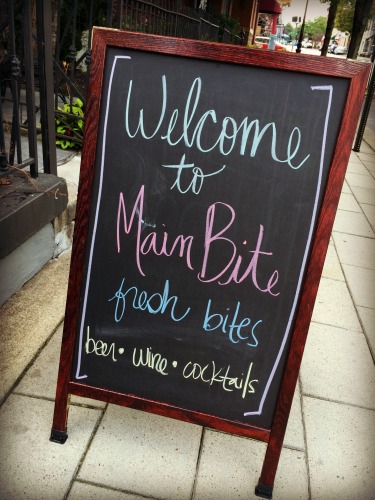 Welcome
to
Main Bite
fresh bites
beer • wine • cocktails